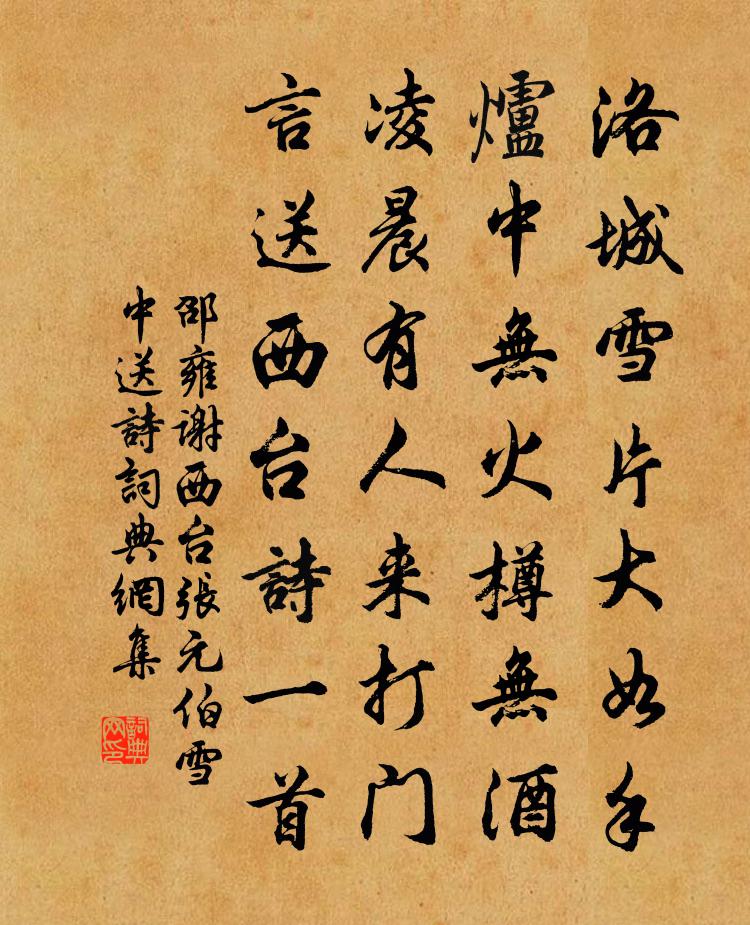 洛城雪片大如手
爐中無火樽無酒
凌晨有人来打门
言送西台詩一首
邵雍谢西台張元伯雪
中送詩詞典網集
詞典
网印